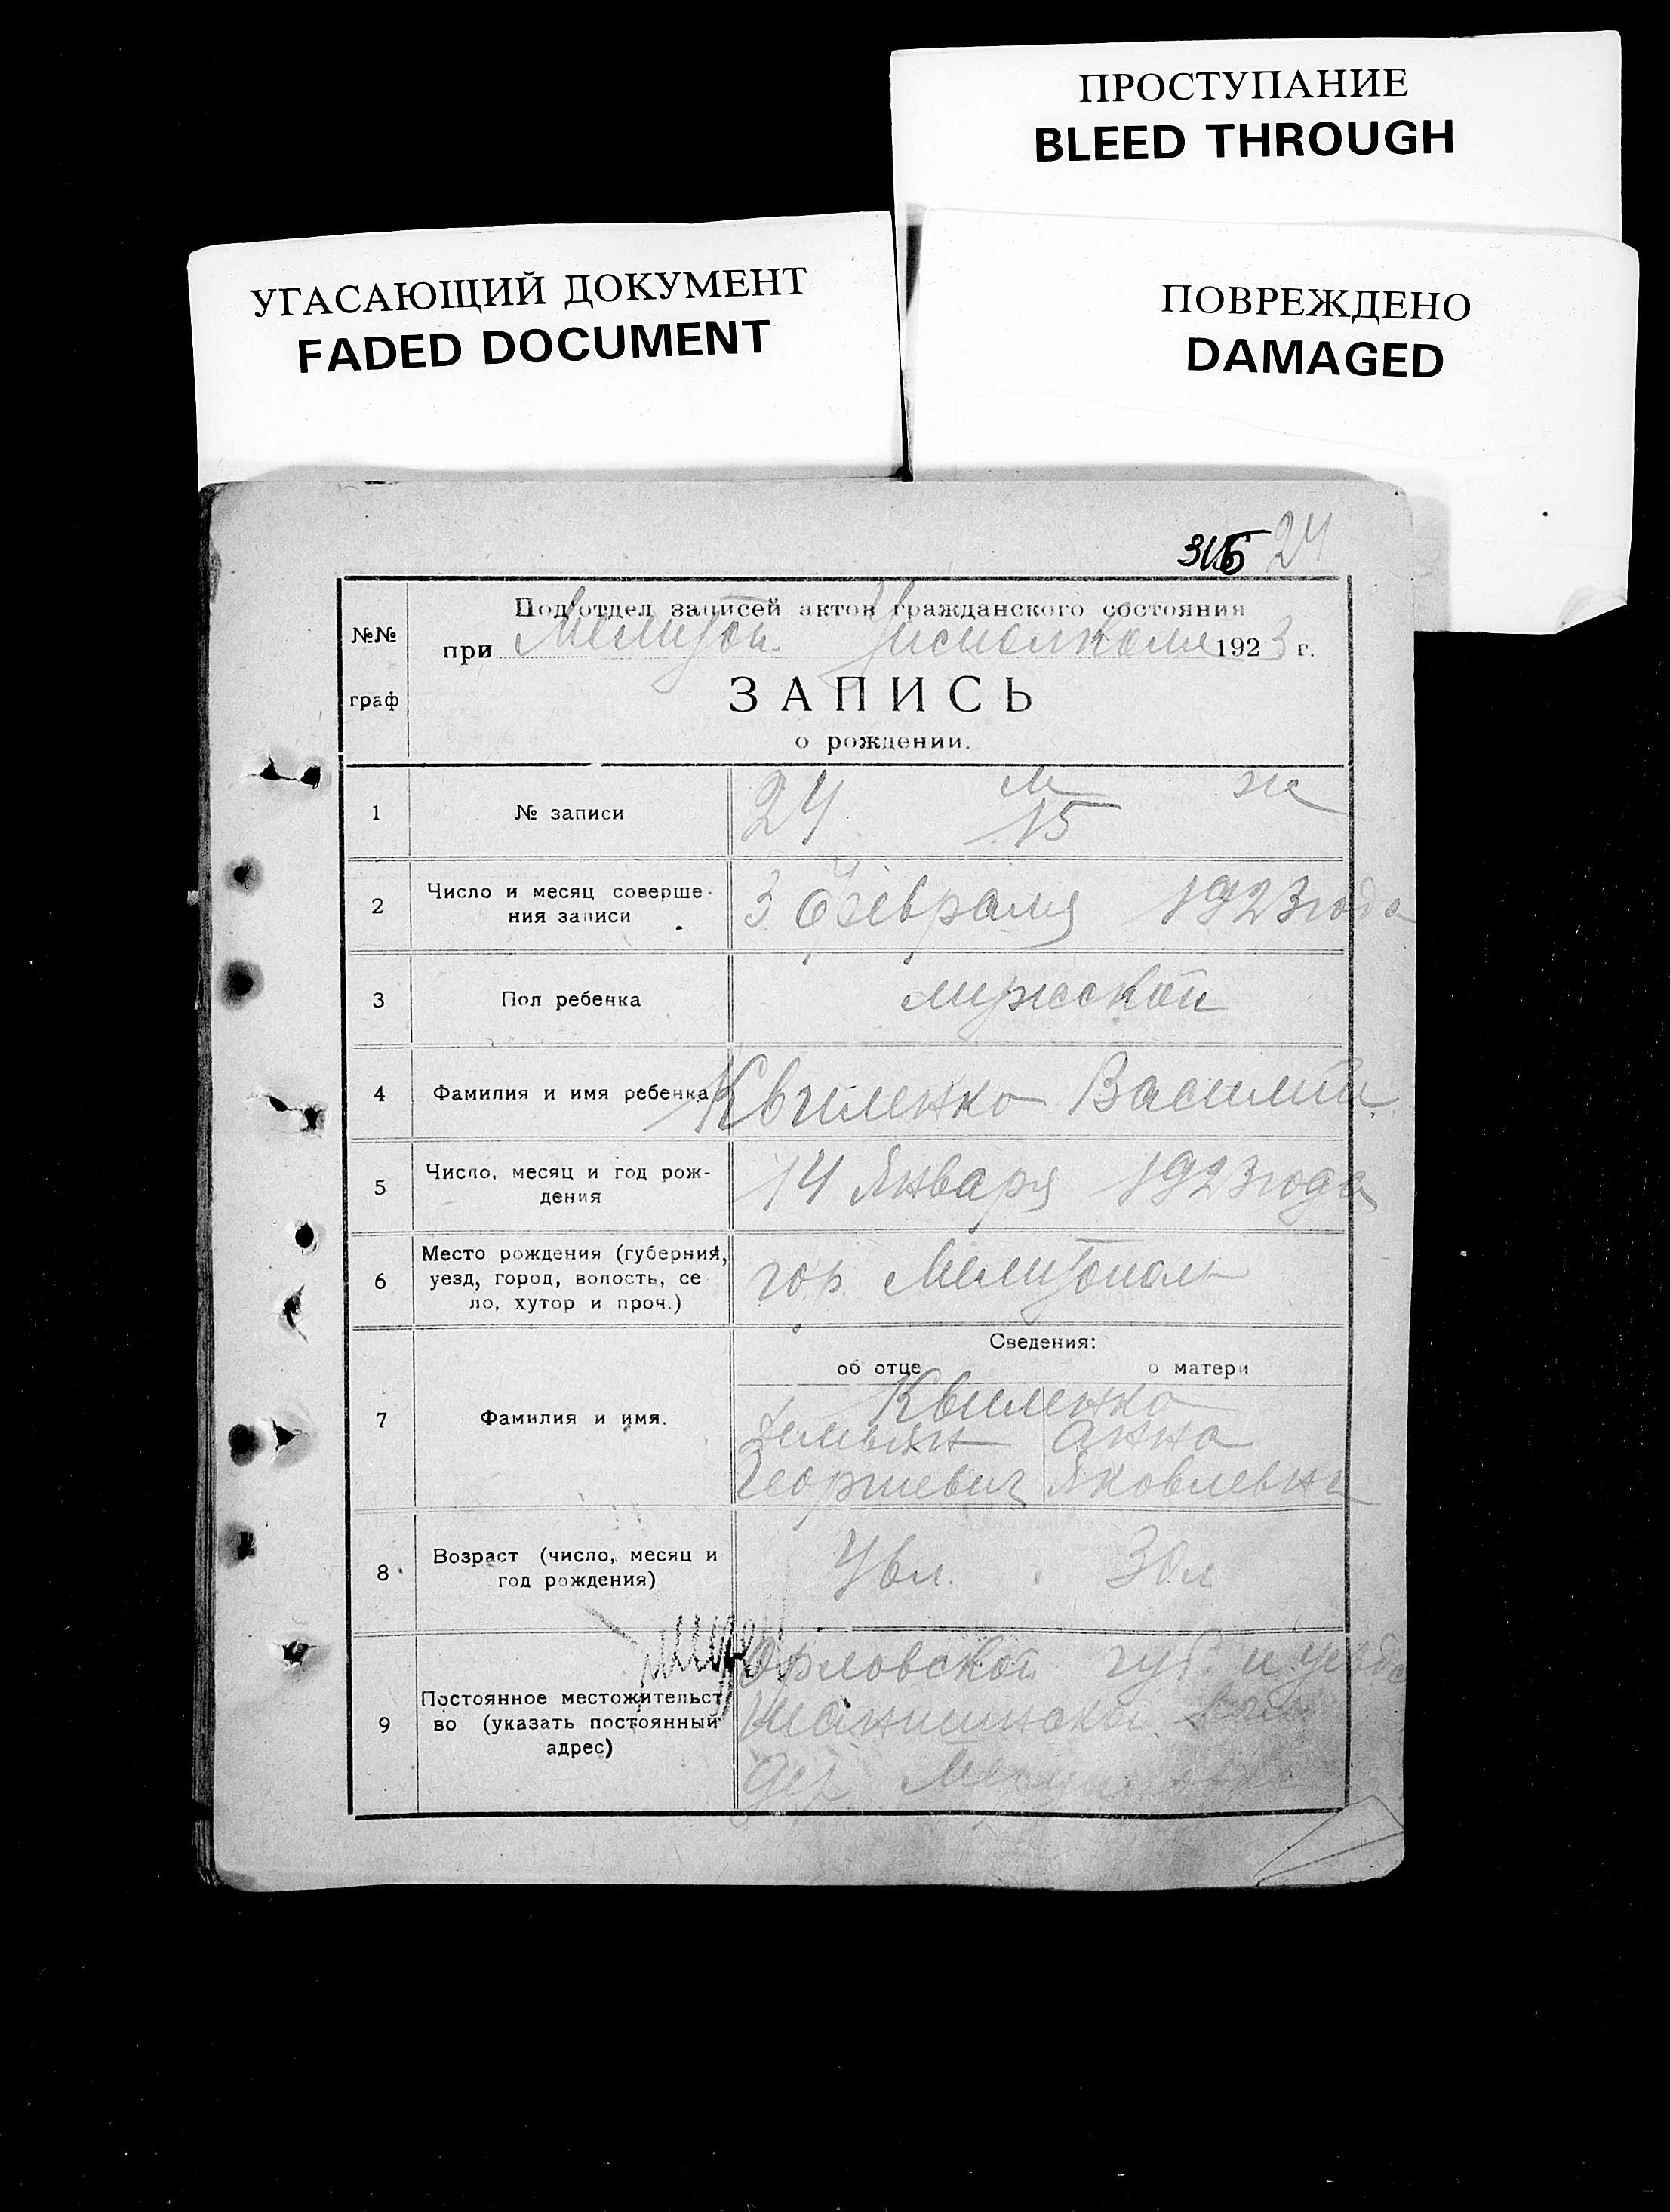 ПРОСТУПАНИЕ
BLEED THROUGH
УГАСАЮЩИЙ ДОКУМЕНТ
FADED DOCUMENT
ПОВРЕЖДЕНО
DAMAGED
24
№№ граф
Подотдел записей актов гражданского состояния
при Мелитоп. Исполкоме 1923 г.
ЗАПИСЬ
о рождении.
1 № записи 24 м 15 ж
2 Число и месяц соверше-
ния записи
3 Февраля 1923 года
3 Пол ребенка мужской
4 Фамилия и имя ребенка Квиленко Василий
5 Число, месяц и год рож-
дения
14 Января 1923 года
6 Место рождения (губерния,
уезд, город, волость, се
ло, хутор и проч.)
гор. Мелитополь
Сведения:
об отце о матери
7 Фамилия и имя.
Квиленко
Демьян Анна
Георгиевич Яковлевна
8 Возраст (число, месяц и
год рождения)
30 л
9 Постоянное местожительст
во (указать постоянный
адрес)
Орловской губ. и уезда
вол
дер